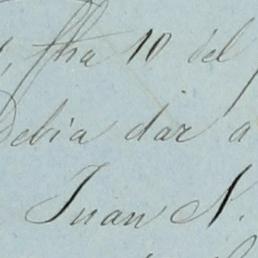 fha 10 del
Debia dar a
Juan N.